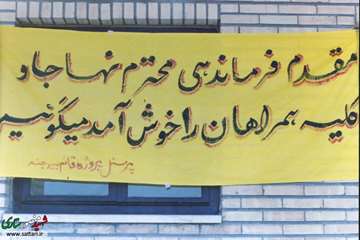 مقدم فرماندهی محترم نهاجا و
کلیه همراهان را خوش آمد میگوئیم
پرسنل پروژه قائم
www.sattari.ir